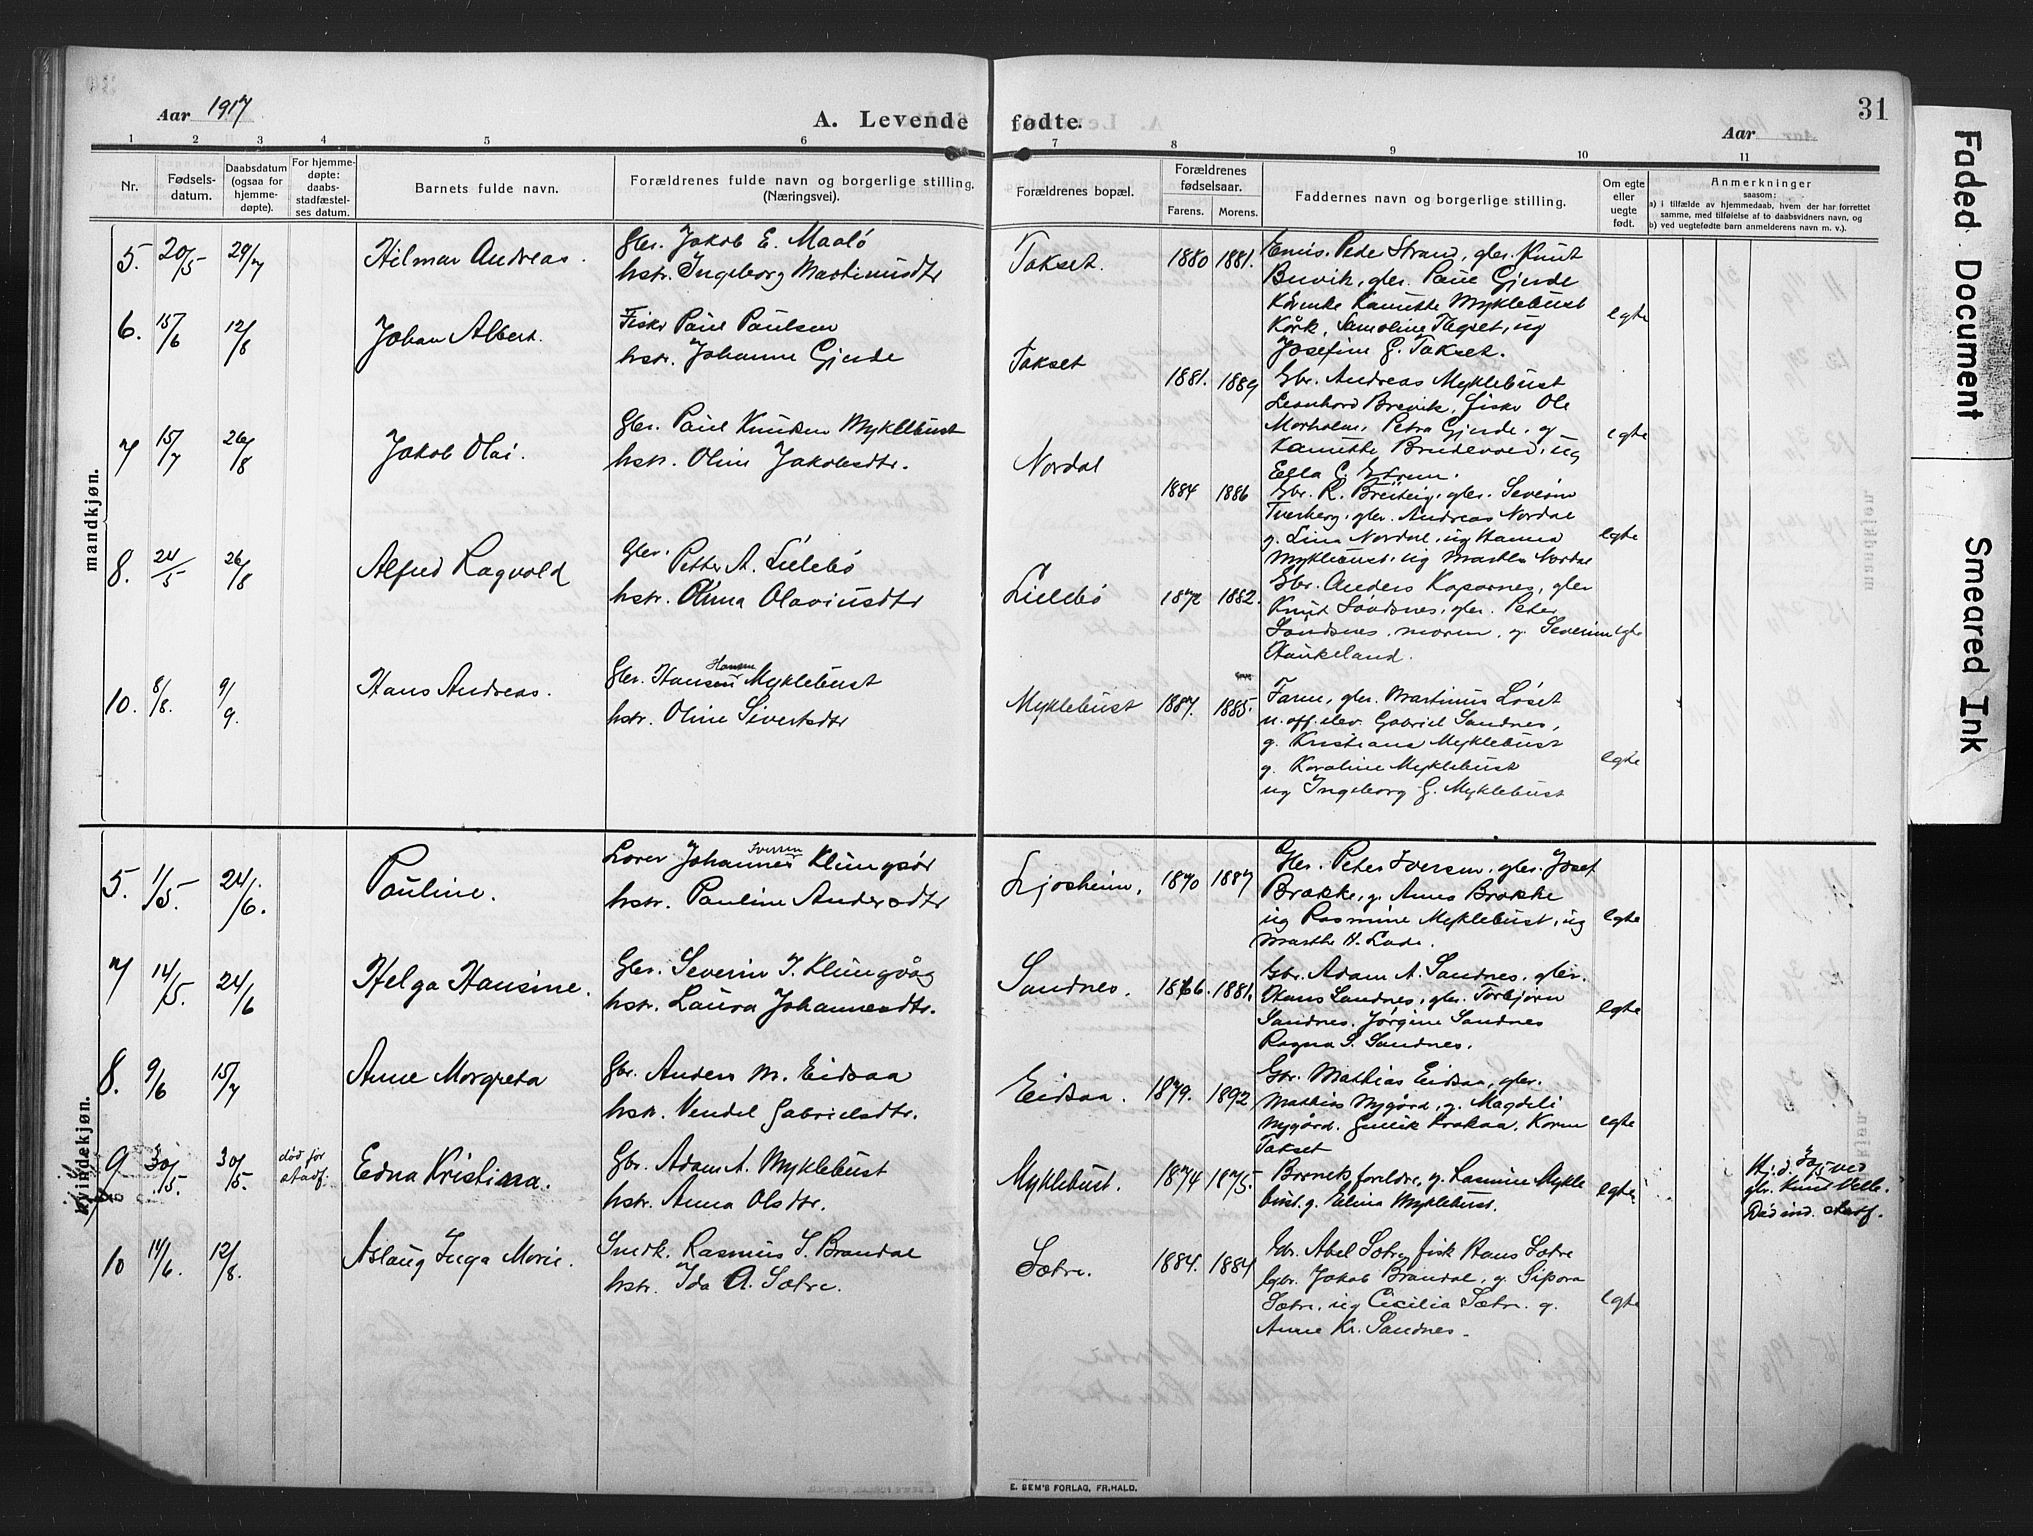 Aar 1917
A. Levende fødte.
Aar
31
1 2 3 4 5 6 7 8 9 10 11
Nr.
Fødsels-
datum.
Daabsdatum
(ogsaa for
hjemme-
døpte).
For hjemme-
døpte:
daabs-
stadfæstel-
ses datum.
Barnets fulde navn.
Forældrenes fulde navn og borgerlige stilling.
(Næringsvei).
Forældrenes bopæl.
Forældrenes
fødselsaar.
Farens. Morens.
Faddernes navn og borgerlige stilling.
Om egte
eller
uegte
født.
Anmerkninger
saasom:
a) i tilfælde av hjemmedaab, hvem der har forrettet
samme, med tilføielse af to daabsvidners navn, og
b) ved uegtefødte barn anmelderens navn m. v.).
mandkjøn.
5. 20/5 29/7 Hilmar Andreas.
Gbr. Jakob E. Maalö
hstr. Ingeborg Martinusdtr
Takset. 1880 1881.
Emis. Peder Strand, gbr. Knut
Buvik, gbr. Paul Gjerde
Kanutte Myklebust
Josefine G. Takset.
egte
6. 15/6 12/8 Johan Albert.
Fisker Paul Paulsen
hstr. Johanne Gjerde
Takset 1881. 1889
Gbr. Andreas Myklebust
Leonhard Brevik, fisker Ole
Morholm, Petra Gjerde, g.
Kanutte Brudevold, ug
egte
7 15/7 26/8 Jakob Olai.
Gbr. Paul Knudsen Myklebust
hstr. Oline Jakobsdtr.
Nordal 1884 1886
Gbr. R. Breiteig, gbr. Severin
Tverberg, gbr. Andreas Nordal
g. Lina Nordal, ug Hanna
Myklebust, ug Marthe Nordal
egte
8. 24/5 26/8 Alfred Ragvald
Gbr. Petter A. Lillebö
hstr. Olina Olaviusdtr
Lillebö 1872 1882.
Gbr. Anders Kopernes, gbr
Knut Sandsnes, gbr. Peter
Sandsnes, moren, g. Severine
Haukeland.
egte
10. 8/8. 9/9. Hans Andreas.
Gbr. Hansen Hansen Myklebust
hstr. Oline Sivertsdtr
Myklebust 1887. 1885.
Faren, gbr. Martinus Löset
u. off. elev. Gabriel Sandnes,
g. Kristiana Myklebust
g. Karoline Myklebust
ug Ingeborg G. Myklebust
egte
kvindekjøn.
5. 1/5. 24/6. Pauline.
Lærer Johannes Iversen Klungsör
hstr. Pauline Andersdtr
Ljosheim. 1870 1887
Gbr. Peter Iversen, gbr. Josef
Brakke, g. Anne Brakke
ug Rasmine Myklebust, ug
Marthe H. Lade.
egte
7 14/5. 24/6 Helga Hansine.
Gbr. Severin J. Klungvåg
hstr. Laura Johannesdtr.
Sandnes. 1866. 1881.
Gbr. Adam A. Sandnes, gbr.
Hans Sandnes, gbr. Torbjørn
Sandnes. Jørgine Sandnes
Ragna S. Sandnes.
egte
8. 9/6 15/7 Anne Margreta
Gbr. Anders M. Eidsaa
hstr. Vendel Gabrielsdtr.
Eidsaa. 1879. 1892
Gbr. Mathias Eidsaa, gbr.
Mathias Nygård, g. Magdeli
Nygård. Gullik Krokaa, Karen
Takset
egte
9 30/5. 30/5. død før stadf. Edna Kristina.
Gbr. Adam A. Myklebust
hstr. Anna Olsdtr.
Myklebust. 1874 1875.
Barnets foreldre, g. Rasmine Mykle
bust, g. Elina Myklebust.
egte
Hj. d. ved
gbr. Knut Velle.
Död ind. stadf.
10 14/6. 12/8. Aslaug Inga Marie.
Snedk. Rasmus S. Brandal
hstr. Ida A. Sætre.
Sætre. 1884. 1884
Gbr. Abel Sætre, fisk Hans Sætre
gbr. Jakob Brandal, g. Sipora
Sætre, ug Cicilia Sætre. g.
Anne Kr. Sandnes.
egte
E. SEM'S FORLAG, FR.HALD.
Faded Document
Smeared Ink